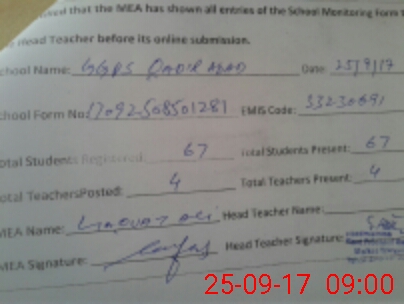 that the MEA has shown all entries of the School Monitoring Form t
Head Teacher before its online submission.
chool Name: GGPS QADIR ABAD Date: 25/9/17
chool Form No: 17092508501281 EMIS Code: 33230691
otal Students Registered: 67 Total Students Present: 67
otal TeachersPosted: 4 Total Teachers Present: 4
MEA Name: Head Teacher Name:
MEA Signature: Head Teacher Signature:
25-09-17 09:00